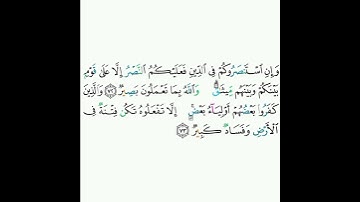 وَإِنِ ٱسۡتَنصَرُوكُمۡ فِي ٱلدِّينِ فَعَلَيۡكُمُ ٱلنَّصۡرُ إِلَّا عَلَىٰ قَوۡمِۭ
بَيۡنَكُمۡ وَبَيۡنَهُم مِّيثَٰقٞۗ وَٱللَّهُ بِمَا تَعۡمَلُونَ بَصِيرٞ ٧٢ وَٱلَّذِينَ
كَفَرُواْ بَعۡضُهُمۡ أَوۡلِيَآءُ بَعۡضٍۚ إِلَّا تَفۡعَلُوهُ تَكُن فِتۡنَةٞ فِي
ٱلۡأَرۡضِ وَفَسَادٞ كَبِيرٞ ٧٣